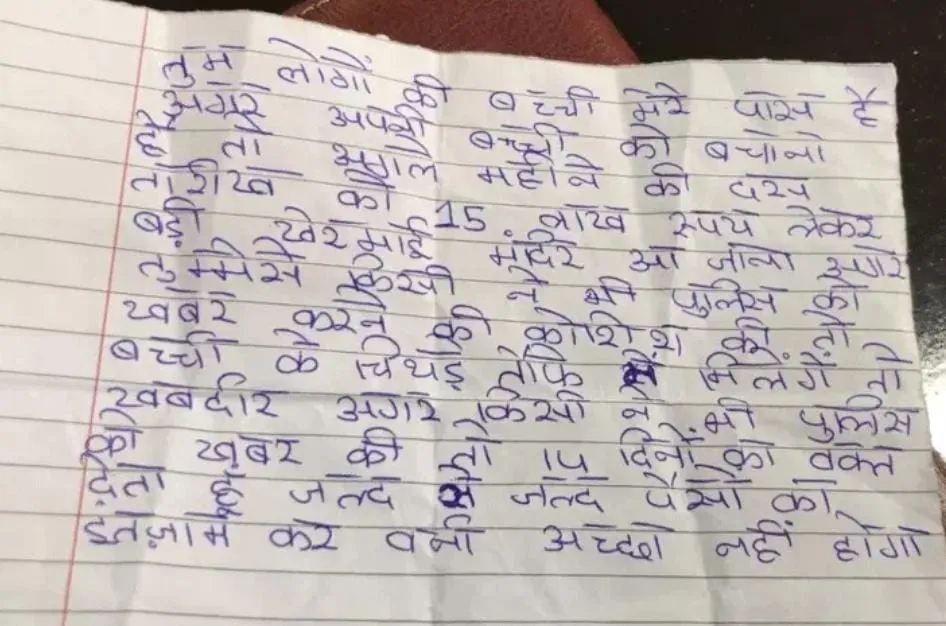 तुम लोगों की बच्ची मेरे पास है
अगर अपनी बच्ची को बचाना
है तो अगले महीने की दस
तारीख को 15 लाख रुपये लेकर
बड़ी खेरमाई मंदिर आ जाना अगर
तुममेसे किसी ने भी पुलिस को
खबर करने की कोशिश की तो
बच्ची के चिथड़े तोफे में मिलेंगे तो
खबर्दार अगर किसी ने भी पुलिस
को खबर की तो दिनों का वक्त
देता हूं जल्द से जल्द पैसों का
इंतज़ाम कर वर्ना अच्छा नहीं होगा